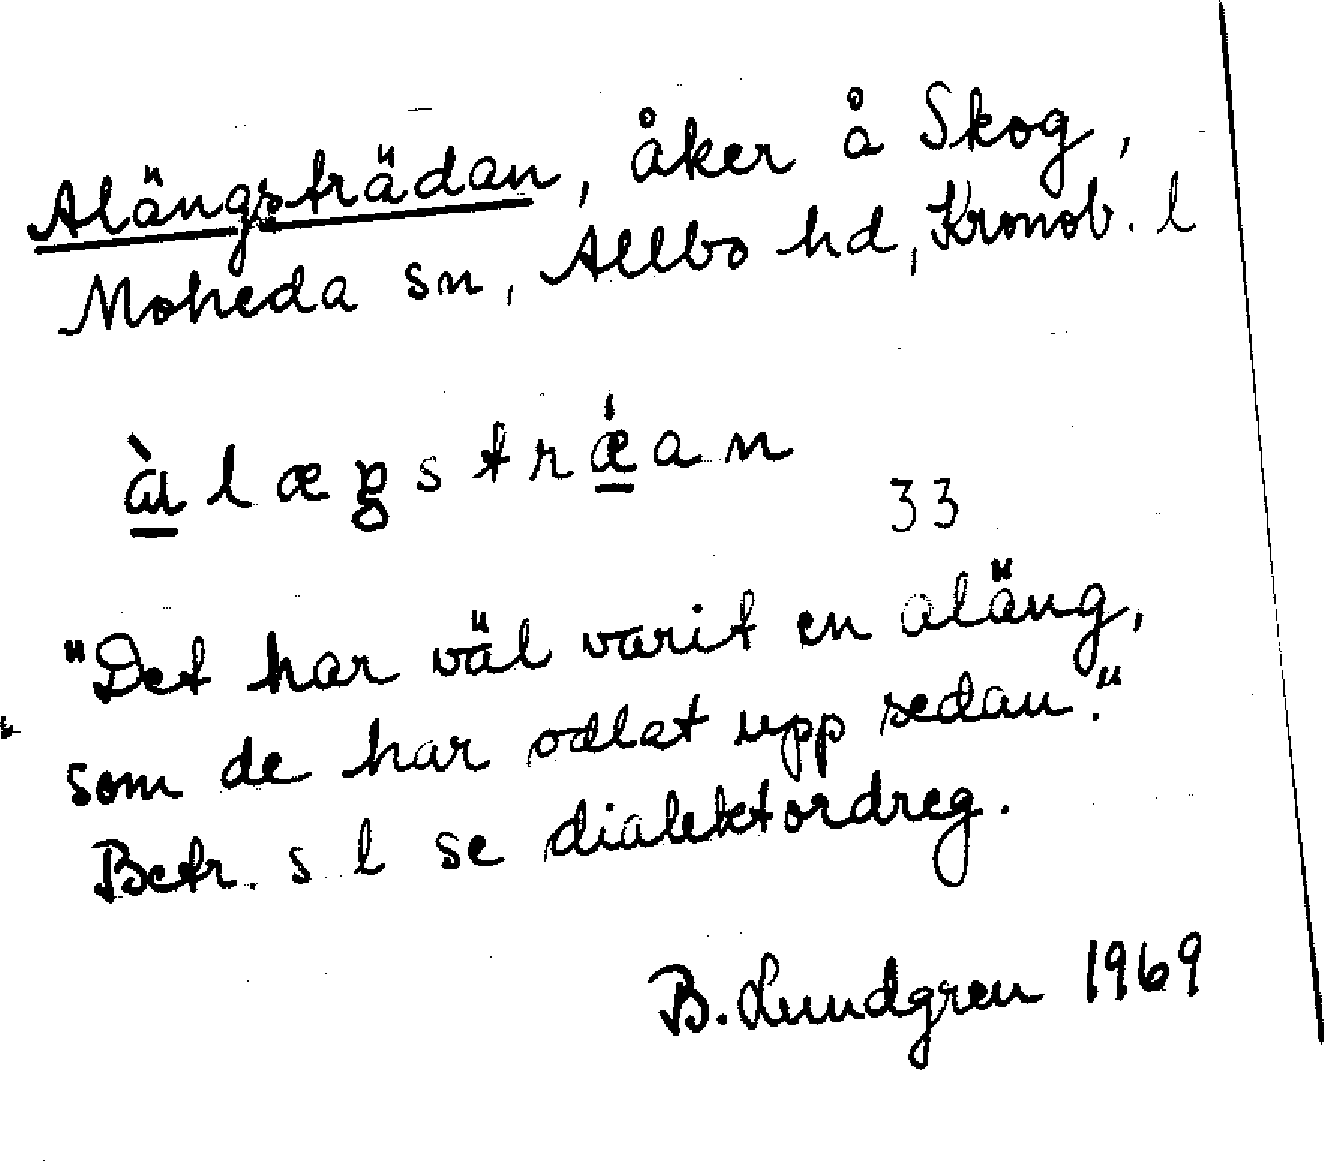 Alängsträdan, åker å Skog,
Moheda sn, Allbo hd, Kronob. l
àlæŋstræ̀an
33
"Det har väl varit en aläng,
som de har odlat upp sedan."
Betr. s l se dialektordreg.
B. Lundgren 1969